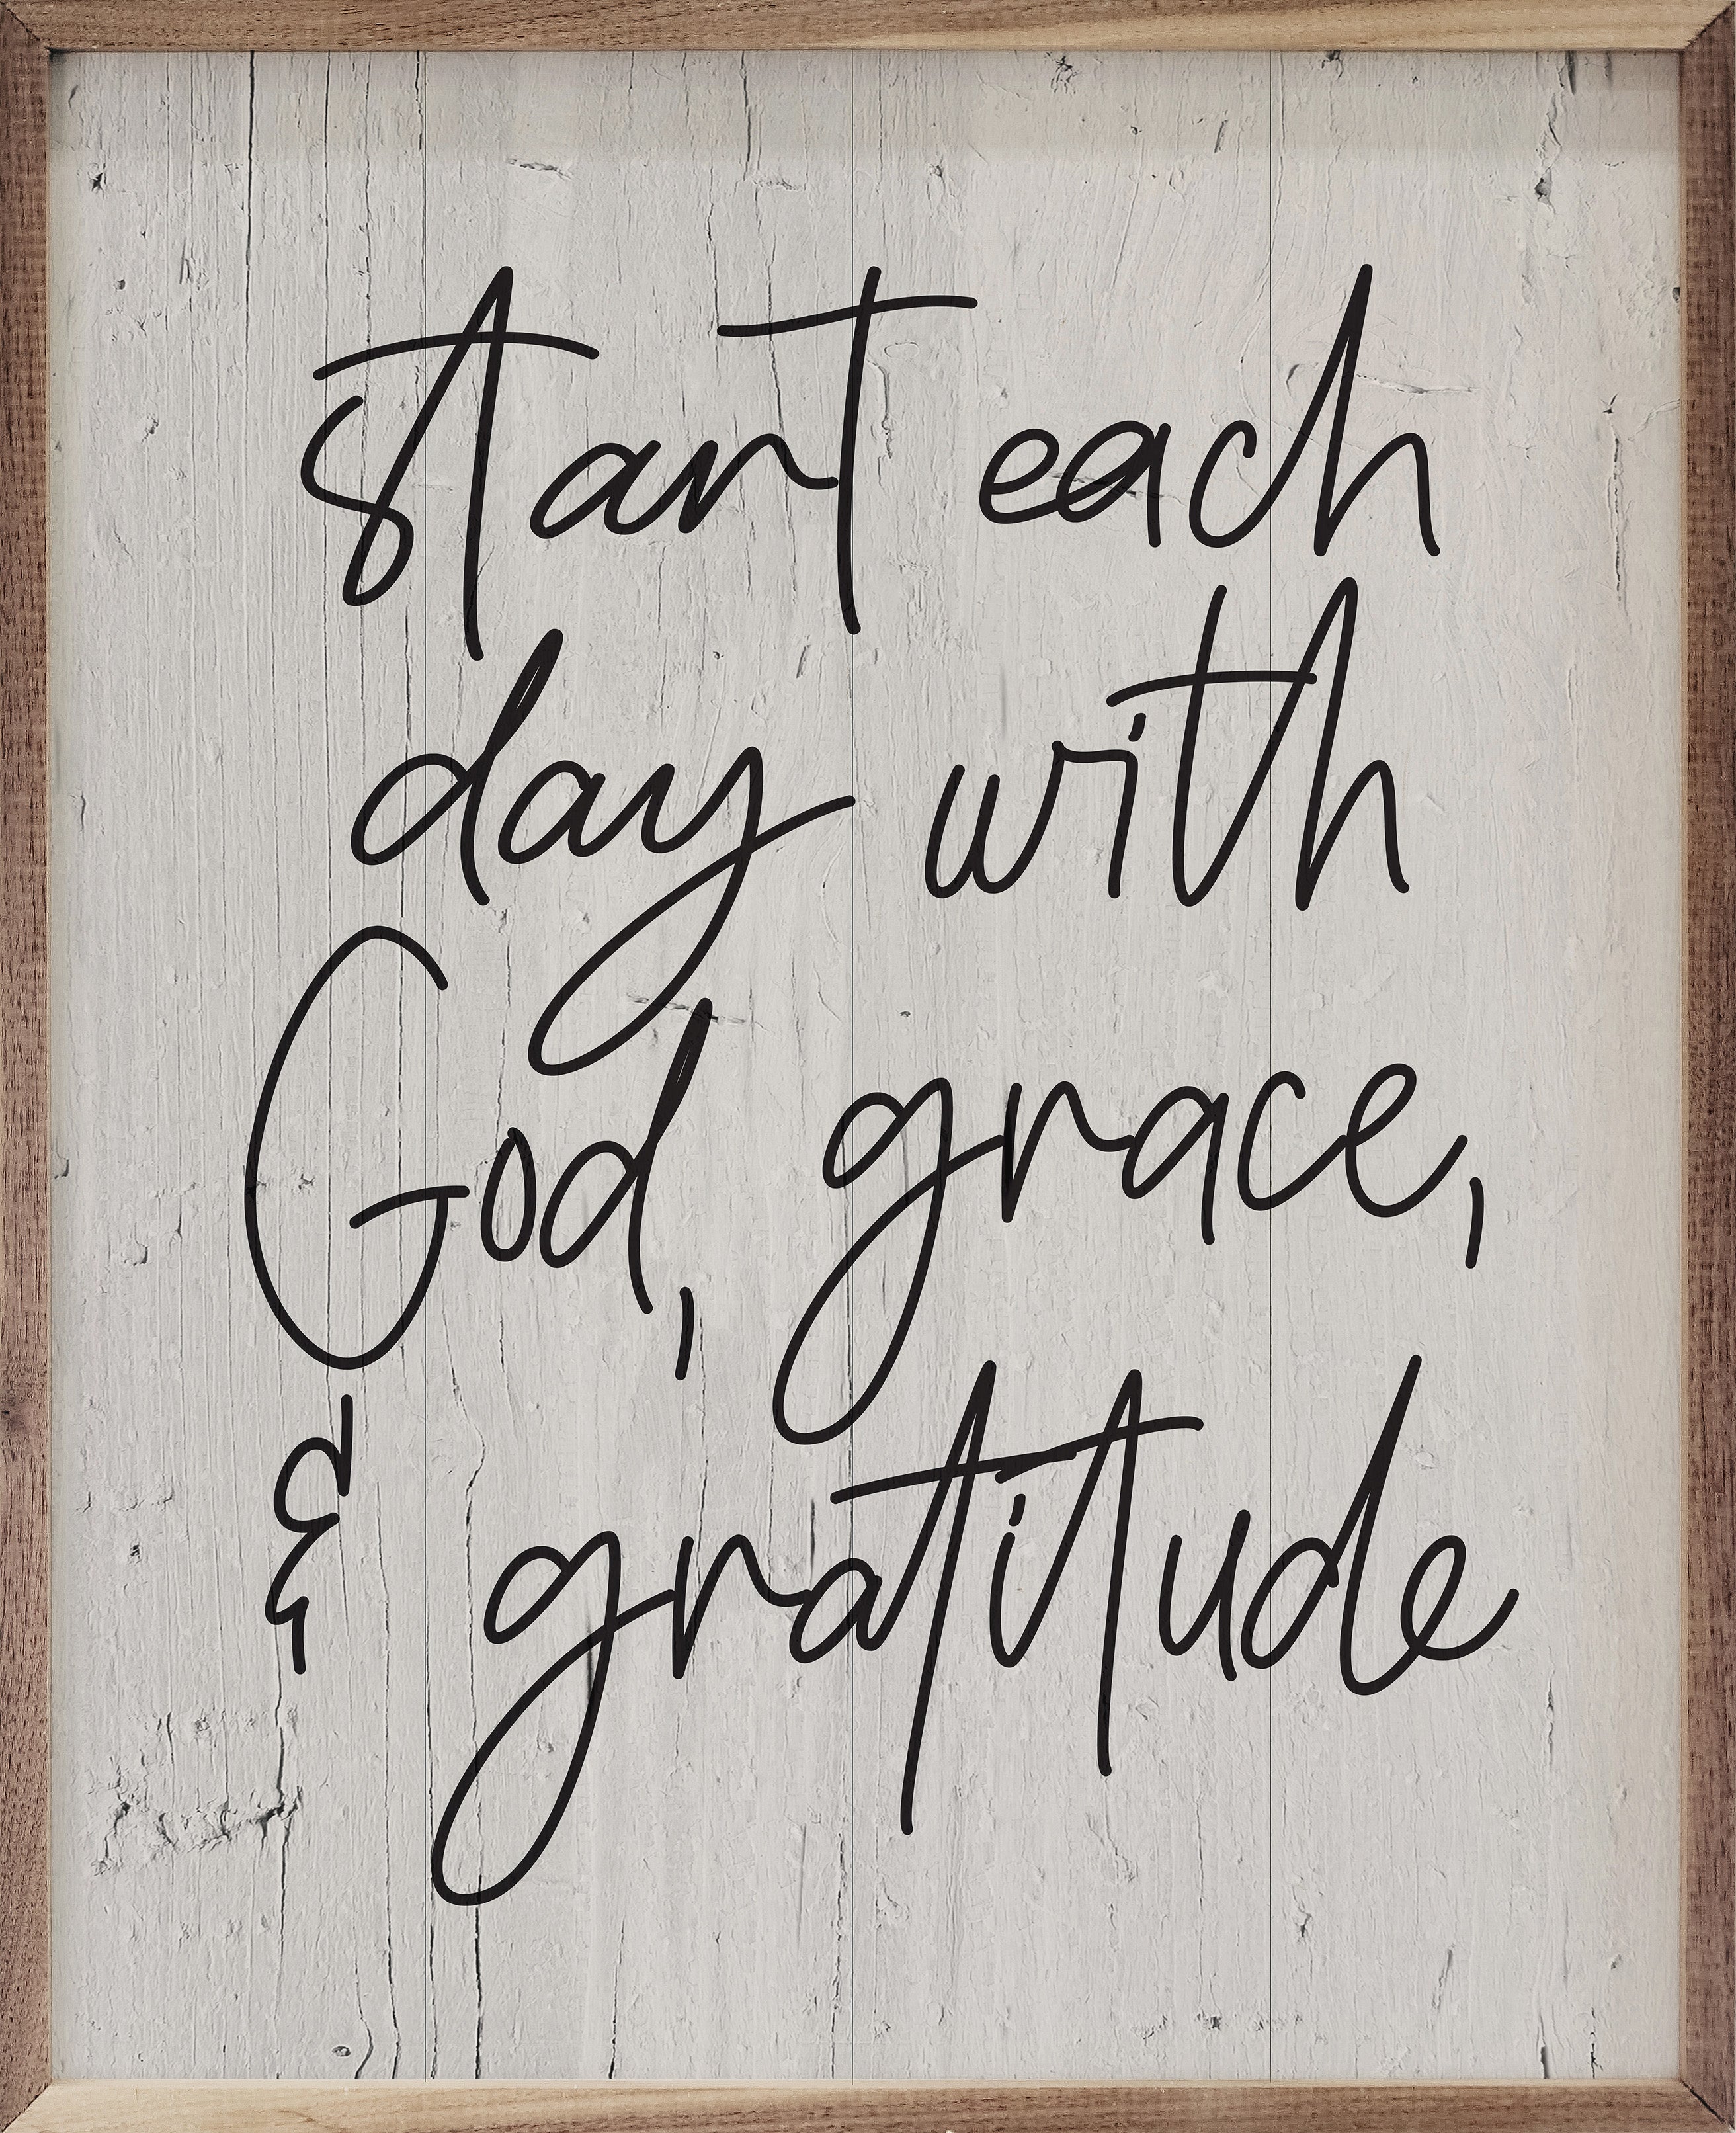 start each
day with
God, grace,
& gratitude